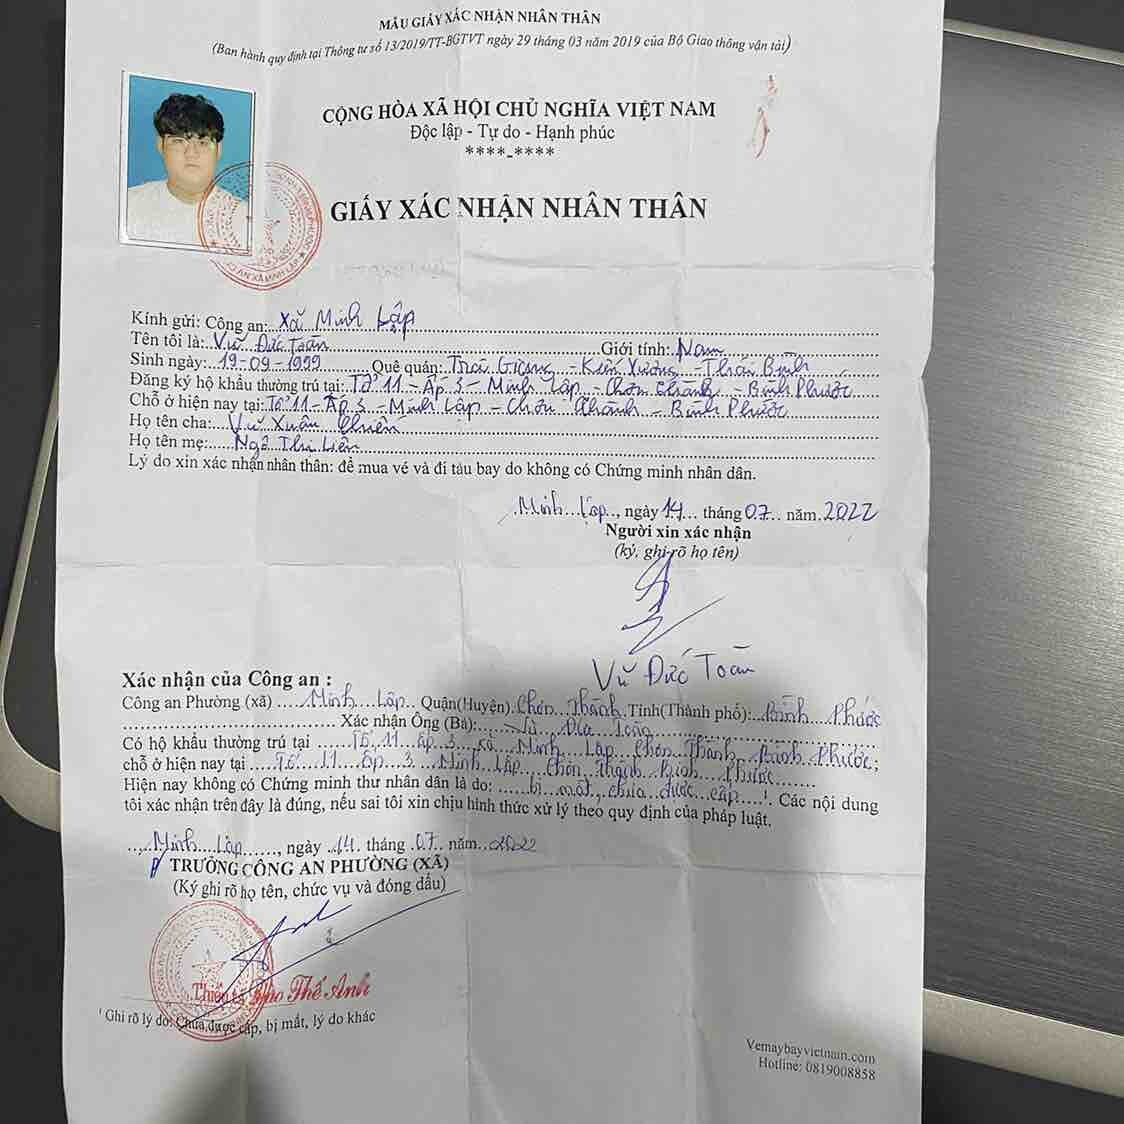 MẪU GIẤY XÁC NHẬN NHÂN THÂN
(Ban hành quy định tại Thông tư số 13/2019/TT-BGTVT ngày 29 tháng 03 năm 2019 của Bộ Giao thông vận tải)
CỘNG HÒA XÃ HỘI CHỦ NGHĨA VIỆT NAM
Độc lập - Tự do - Hạnh phúc
****-****
GIẤY XÁC NHẬN NHÂN THÂN
CÔNG AN XÃ MINH LẬP
Kính gửi: Công an: Xã Minh Lập
Tên tôi là: Vũ Đức Toàn Giới tính: Nam
Sinh ngày: 19-09-1999 Quê quán: Thái Giang - Kiến Xương - Thái Bình
Đăng ký hộ khẩu thường trú tại: Tổ 11 - Ấp 3 - Minh Lập - Chơn Thành - Bình Phước
Chỗ ở hiện nay tại: Tổ 11 - Ấp 3 - Minh Lập - Chơn Thành - Bình Phước
Họ tên cha: Vũ Xuân
Họ tên mẹ: Ngô Thị Liên
Lý do xin xác nhận nhân thân: để mua vé và đi tàu bay do không có Chứng minh nhân dân.
Minh Lập, ngày 14 tháng 07 năm 2022
Người xin xác nhận
(ký, ghi rõ họ tên)
Vũ Đức Toàn
Xác nhận của Công an :
Công an Phường (xã) Minh Lập Quận(Huyện) Chơn Thành Tỉnh(Thành phố): Bình Phước
Xác nhận Ông (Bà): Vũ Đức Toàn
Có hộ khẩu thường trú tại Tổ 11 ấp 3 xã Minh Lập Chơn Thành Bình Phước;
chỗ ở hiện nay tại Tổ 11 ấp 3 Minh Lập Chơn Thành Bình Phước
Hiện nay không có Chứng minh thư nhân dân là do: bị mất, chưa được cấp ¹. Các nội dung
tôi xác nhận trên đây là đúng, nếu sai tôi xin chịu hình thức xử lý theo quy định của pháp luật.
Minh Lập, ngày 14 tháng 07 năm 2022
TRƯỞNG CÔNG AN PHƯỜNG (XÃ)
(Ký ghi rõ họ tên, chức vụ và đóng dấu)
Thế Anh
¹ Ghi rõ lý do: Chưa được cấp, bị mất, lý do khác
Vemaybayvietnam.com
Hotline: 0819008858